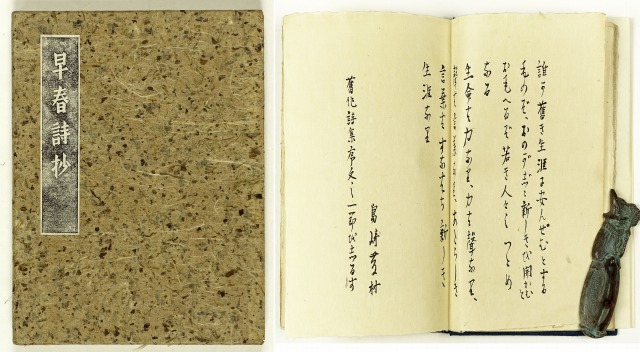 早春詩抄
誰か舊き生涯に安んぜむとする
ものぞ、おのがじし新しきを開かむと
おもへるぞ若き人々のつとめ
なる
生命は力なり、力は聲なり、
聲は言葉なり、あたらしき
言葉はすなはち新しき
生涯なり
島崎藤村
舊作詩集序文の一節を志るす